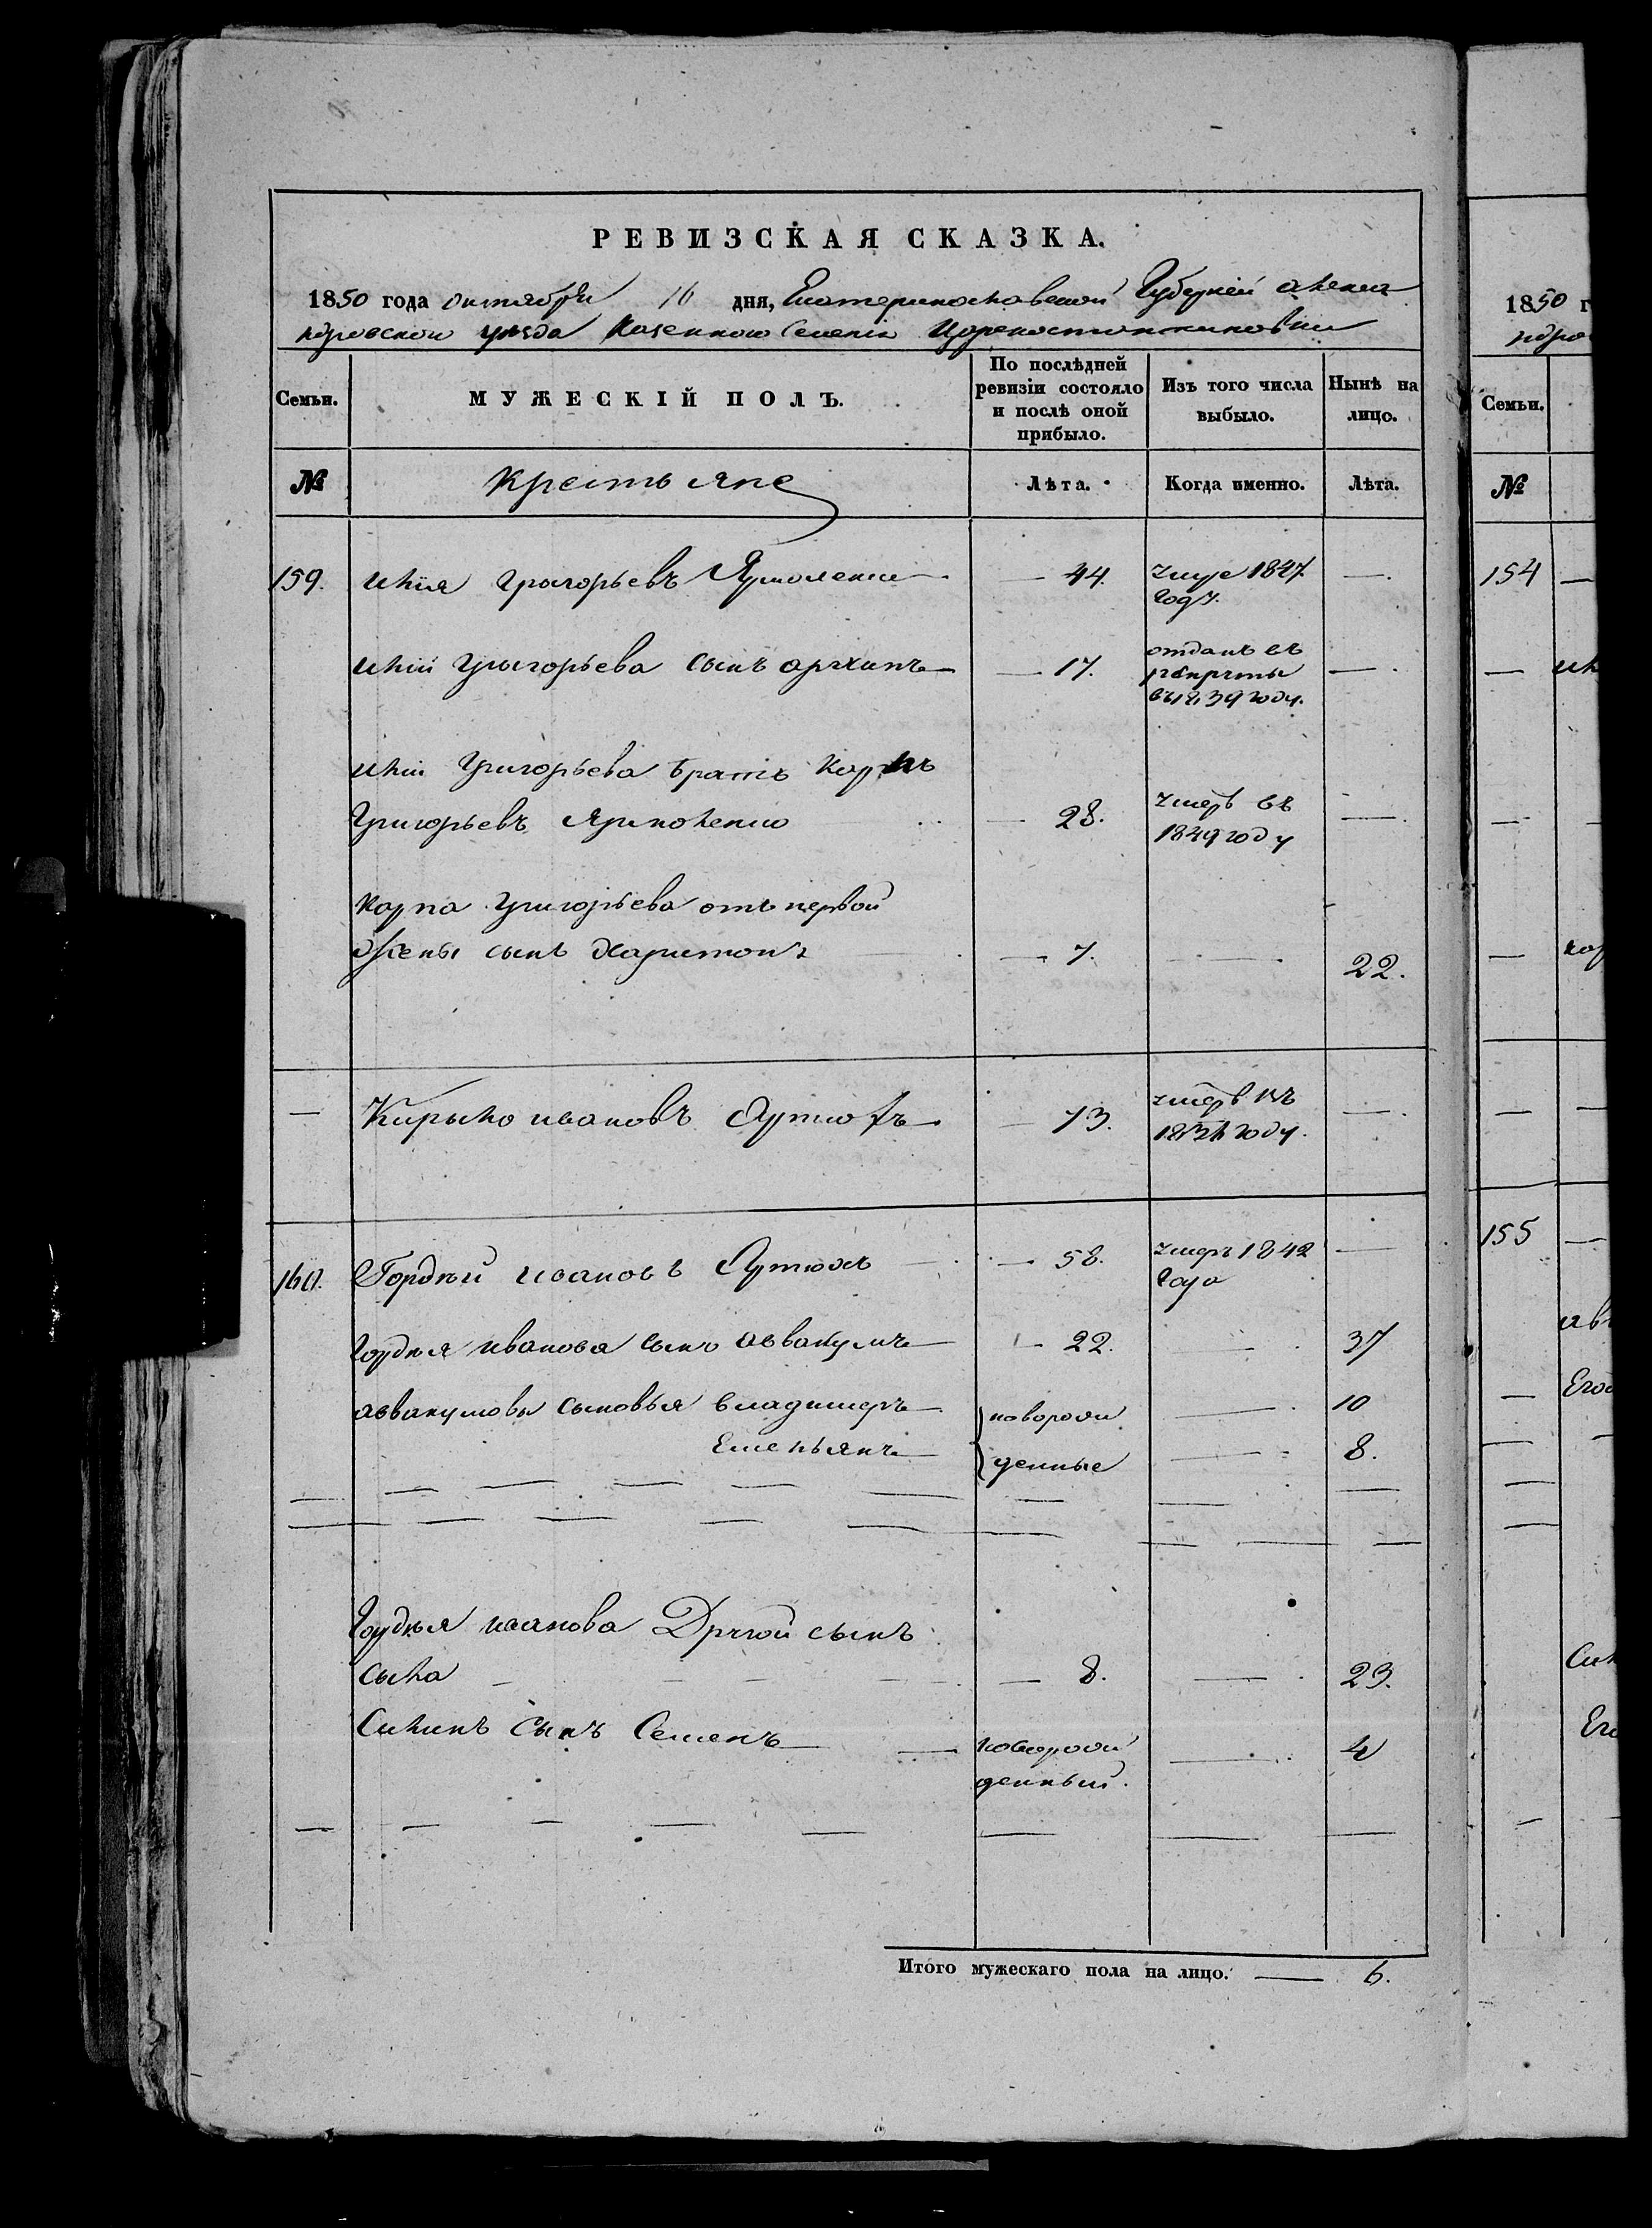 РЕВИЗСКАЯ СКАЗКА.
1850 года октября 16 дня, Екатеринославской Губерніи Алекса
ндровскои уезда Казенного Селенія Цареконстантиновки
Семьи.
МУЖЕСКІЙ ПОЛЪ.
По послѣдней ревизіи состояло и послѣ оной прибыло.
Изъ того числа выбыло.
Нынѣ на лицо.
№ Крестьяне Лѣта. Когда именно. Лѣта.
159. Илія Григорьевъ Ярмоленко — 44. умре 1847 —
году.
Иліи Григорьева сынъ архипъ — 17. отданъ въ рекруты въ 1839 году. —
Иліи Григорьева братъ Карпъ
Григорьевъ Ярмоленко — 28. умеръ въ 1849 году —
Карпа Григорьева отъ первой
Жены сынъ Харитонъ — 7. — 22.
— Кирыло ивановъ Артюхъ — 73. умеръ въ —
году.
160. Гордѣй ивановъ Артюхъ — 58. умеръ 1842 —
года
Гордѣя иванова сынъ аввакумъ — 22. — 37
аввакумовы сыновья владимеръ — новорож — 10
Емельянъ — денные — 8.
Гордѣя иванова Другой сынъ
сыла — 8. — 23.
Силинъ сынъ Семенъ — новорож — 4
денный.
Итого мужескаго пола на лицо. — 6.
1850 г
ндро
Семьи.
№
154 —
— ил
— кар
— —
155 —
авв
— Его
Сил
Его